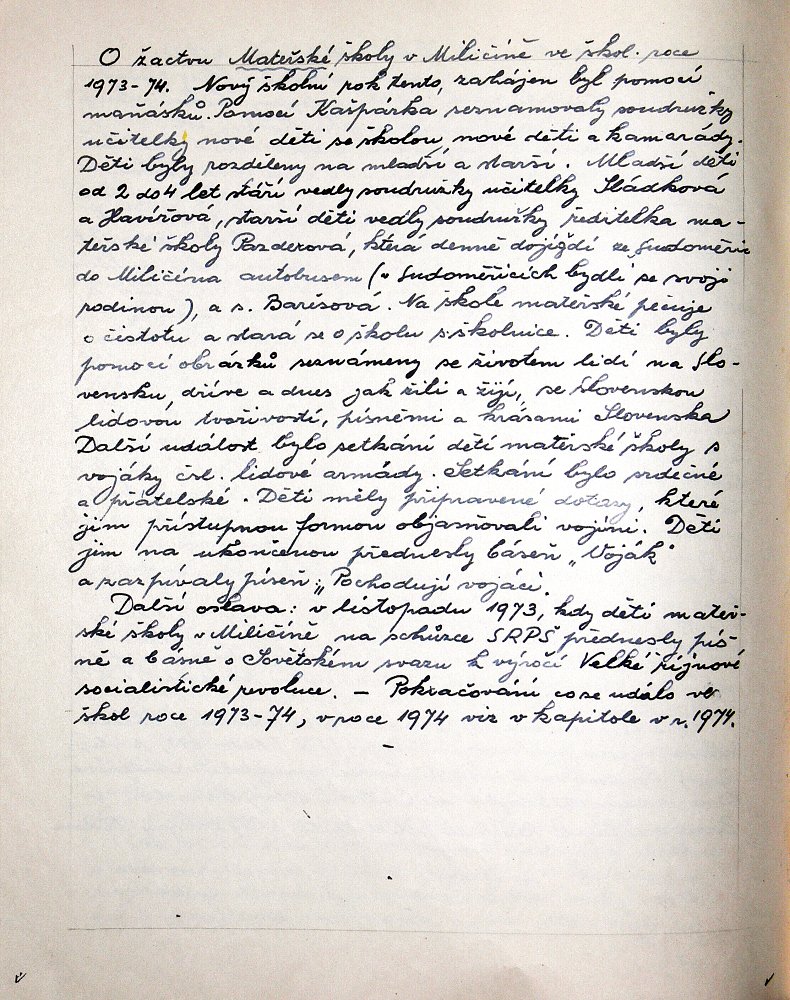 O žactvu Mateřské školy v Miličíně ve škol. roce
1973-74. Nový školní rok tento, zahájen byl pomocí
maňásků. Pomocí Kašpárka seznamovaly soudružky
učitelky nové děti se školou, nové děti a kamarády.
Děti byly rozděleny na mladší a starší. Mladší děti
od 2 do 4 let stáří vedly soudružky učitelky Sládková
a Havířová, starší děti vedly soudružky ředitelka ma-
teřské školy Pazderová, která denně dojíždí ze Sudoměřic
do Miličína autobusem (v Sudoměřicích bydlí se svojí
rodinou), a s. Barešová. Na škole mateřské pečuje
o čistotu a stará se o školu s. školnice. Děti byly
pomocí obrázků seznámeny se životem lidí na Slo-
vensku, dříve a dnes jak žili a žijí, se slovenskou
lidovou tvořivostí, písněmi a krásami Slovenska
Další událost bylo setkání dětí mateřské školy s
vojáky čsl. lidové armády. Setkání bylo srdečné
a přátelské. Děti měly připravené dotazy, které
jim přístupnou formou objasňovali vojíni. Děti
jim na ukončenou přednesly báseň „Voják"
a zazpívaly píseň: „Pochodují vojáci.
Další oslava: v listopadu 1973, kdy děti mateř-
ské školy v Miličíně na schůzce SRPŠ přednesly pís-
ně a básně o Sovětském svazu k výročí Velké říjnové
socialistické revoluce. — Pokračování co se událo ve
škol roce 1973-74, v roce 1974 viz v kapitole v r. 1974.
—